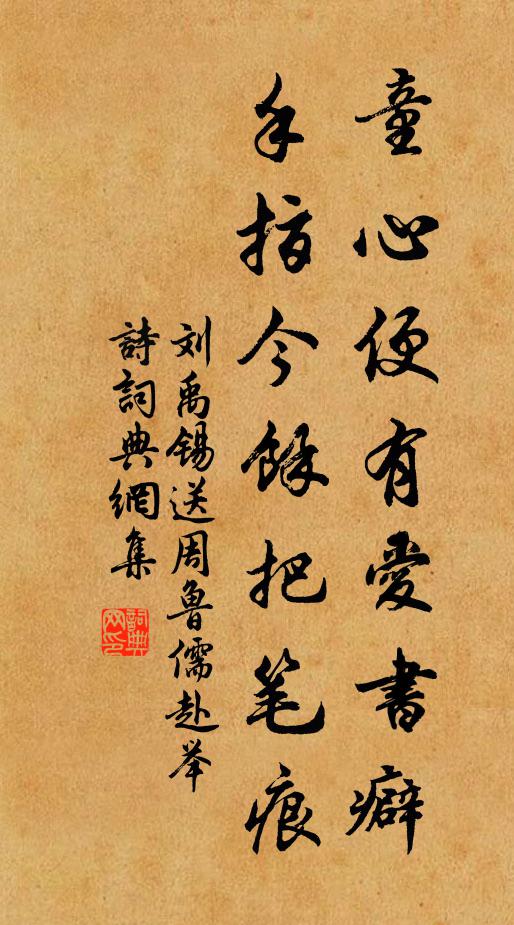 童心便有愛書癖
手指今餘把笔痕
刘禹锡送周魯儒赴举
詩詞典網集
詞典网印